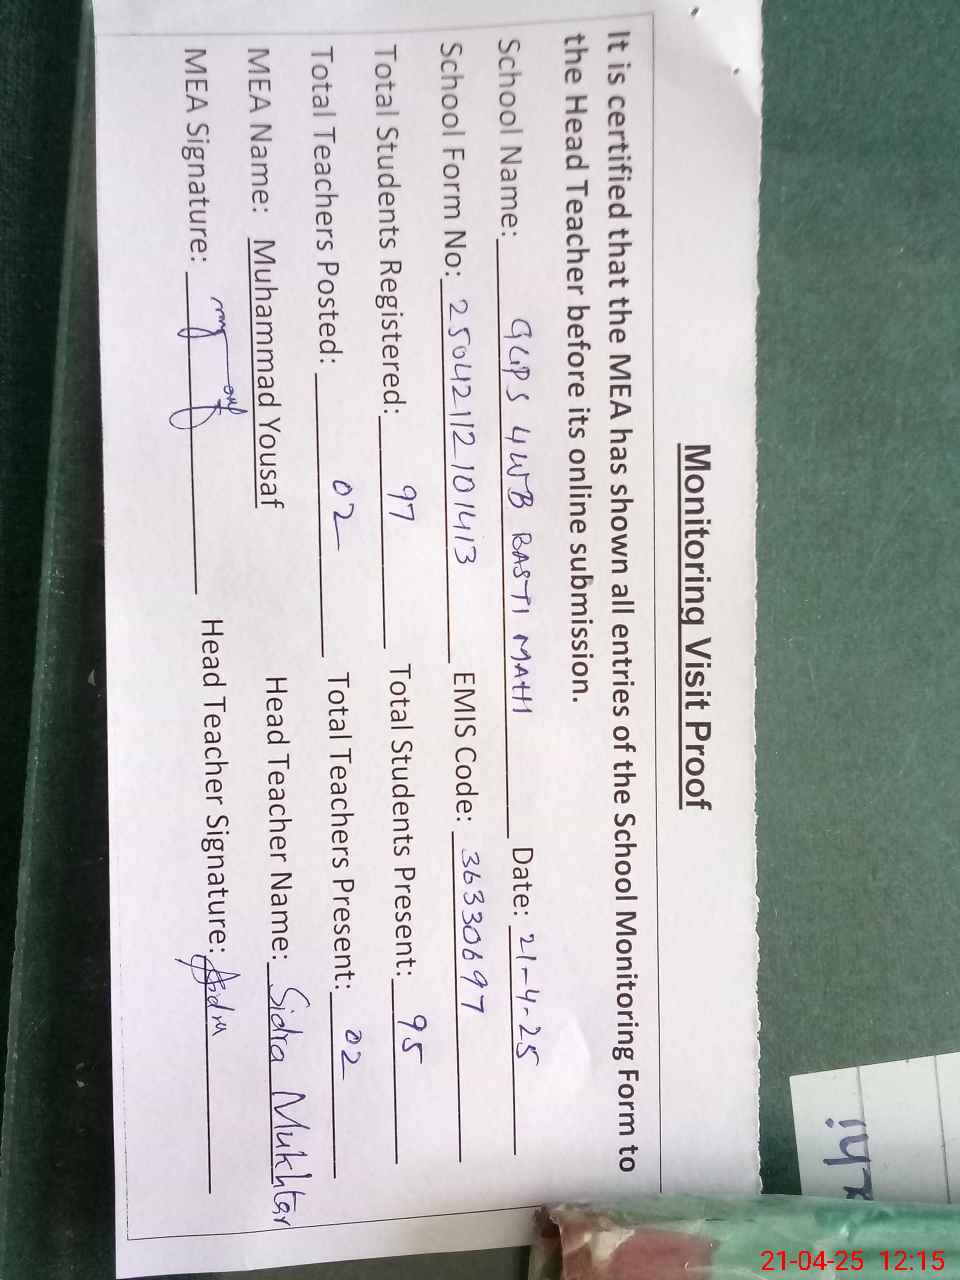 Monitoring Visit Proof
It is certified that the MEA has shown all entries of the School Monitoring Form to
the Head Teacher before its online submission.
School Name: GGPS 4WB BASTI MATH Date: 21-4-25
School Form No: 25042112101413 EMIS Code: 36330697
Total Students Registered: 97 Total Students Present: 95
Total Teachers Posted: 02 Total Teachers Present: 02
MEA Name: Muhammad Yousaf Head Teacher Name: Sidra Mukhtar
MEA Signature: Head Teacher Signature:
21-04-25 12:15